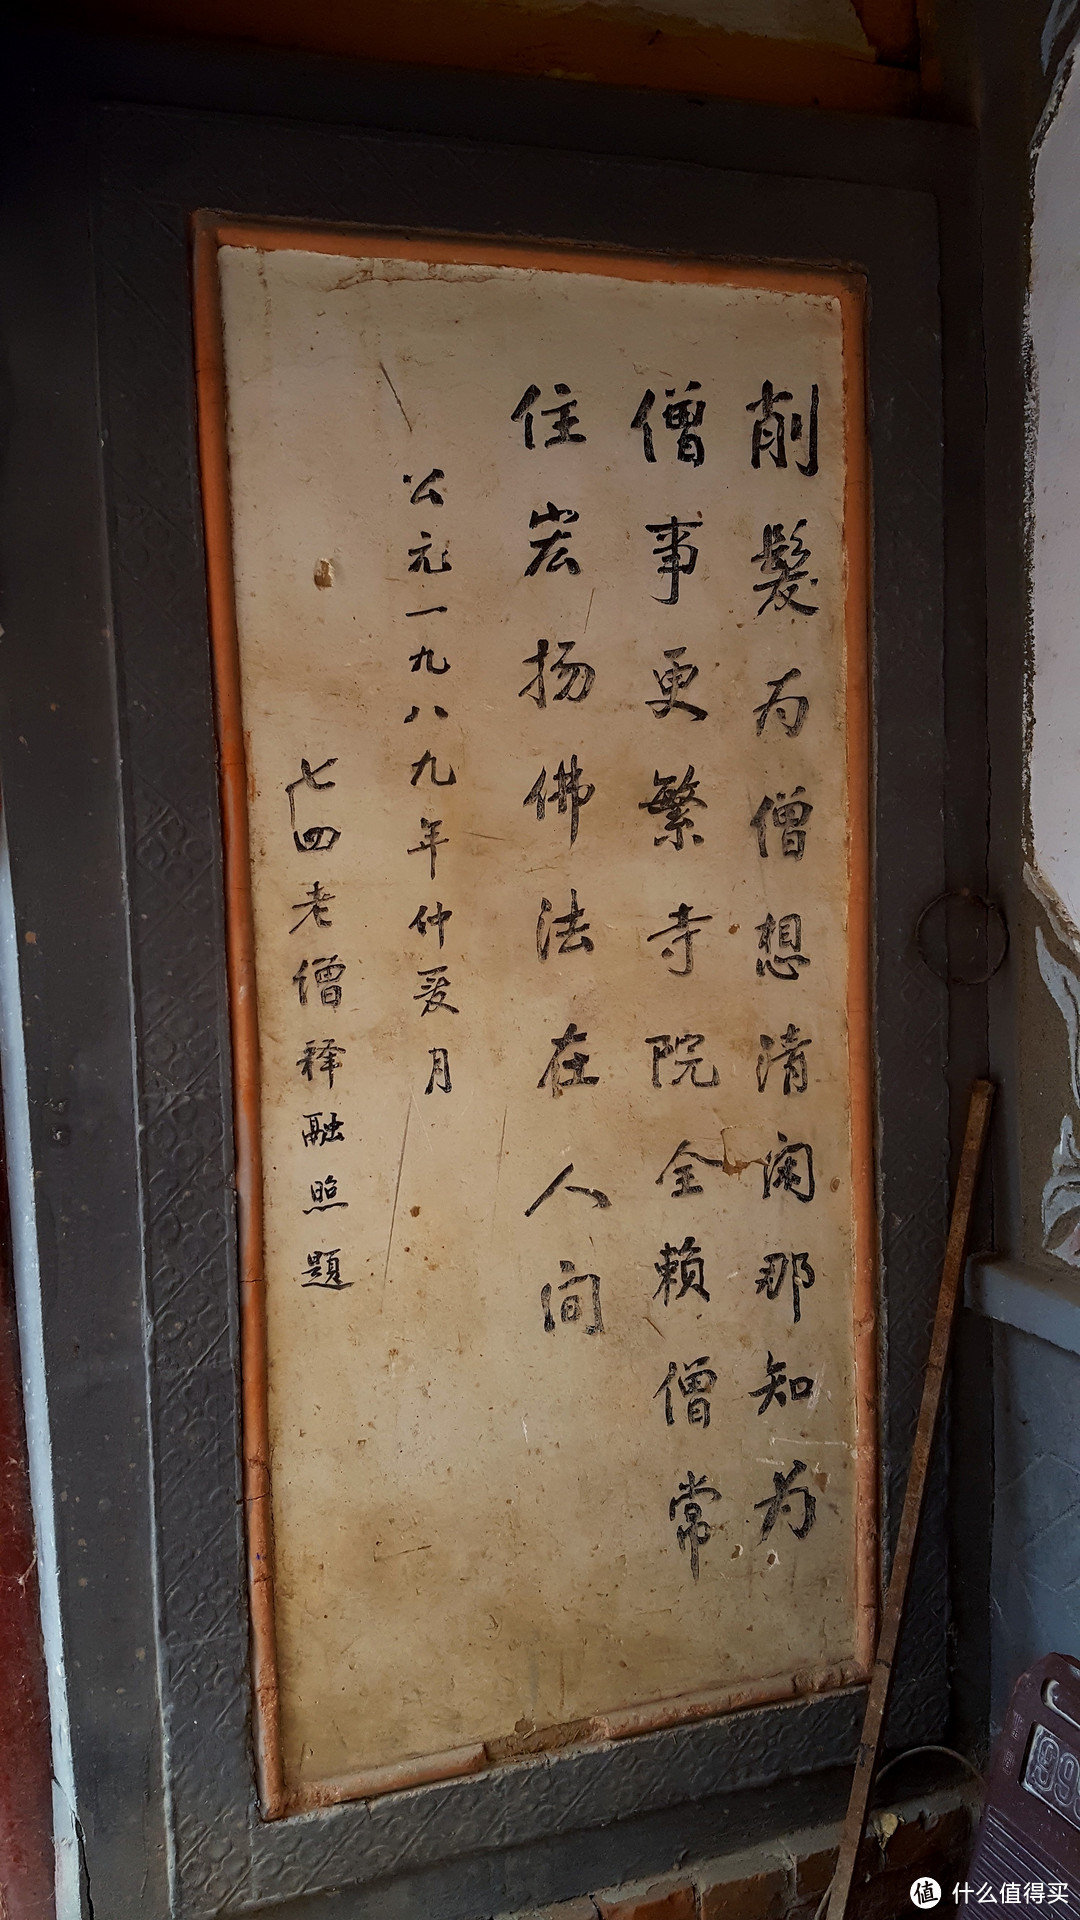 削髮为僧想清闲那知为
僧事更繁寺院全赖僧常
住宏扬佛法在人间
公元一九八九年仲夏月
七四老僧释融照題
值 什么值得买